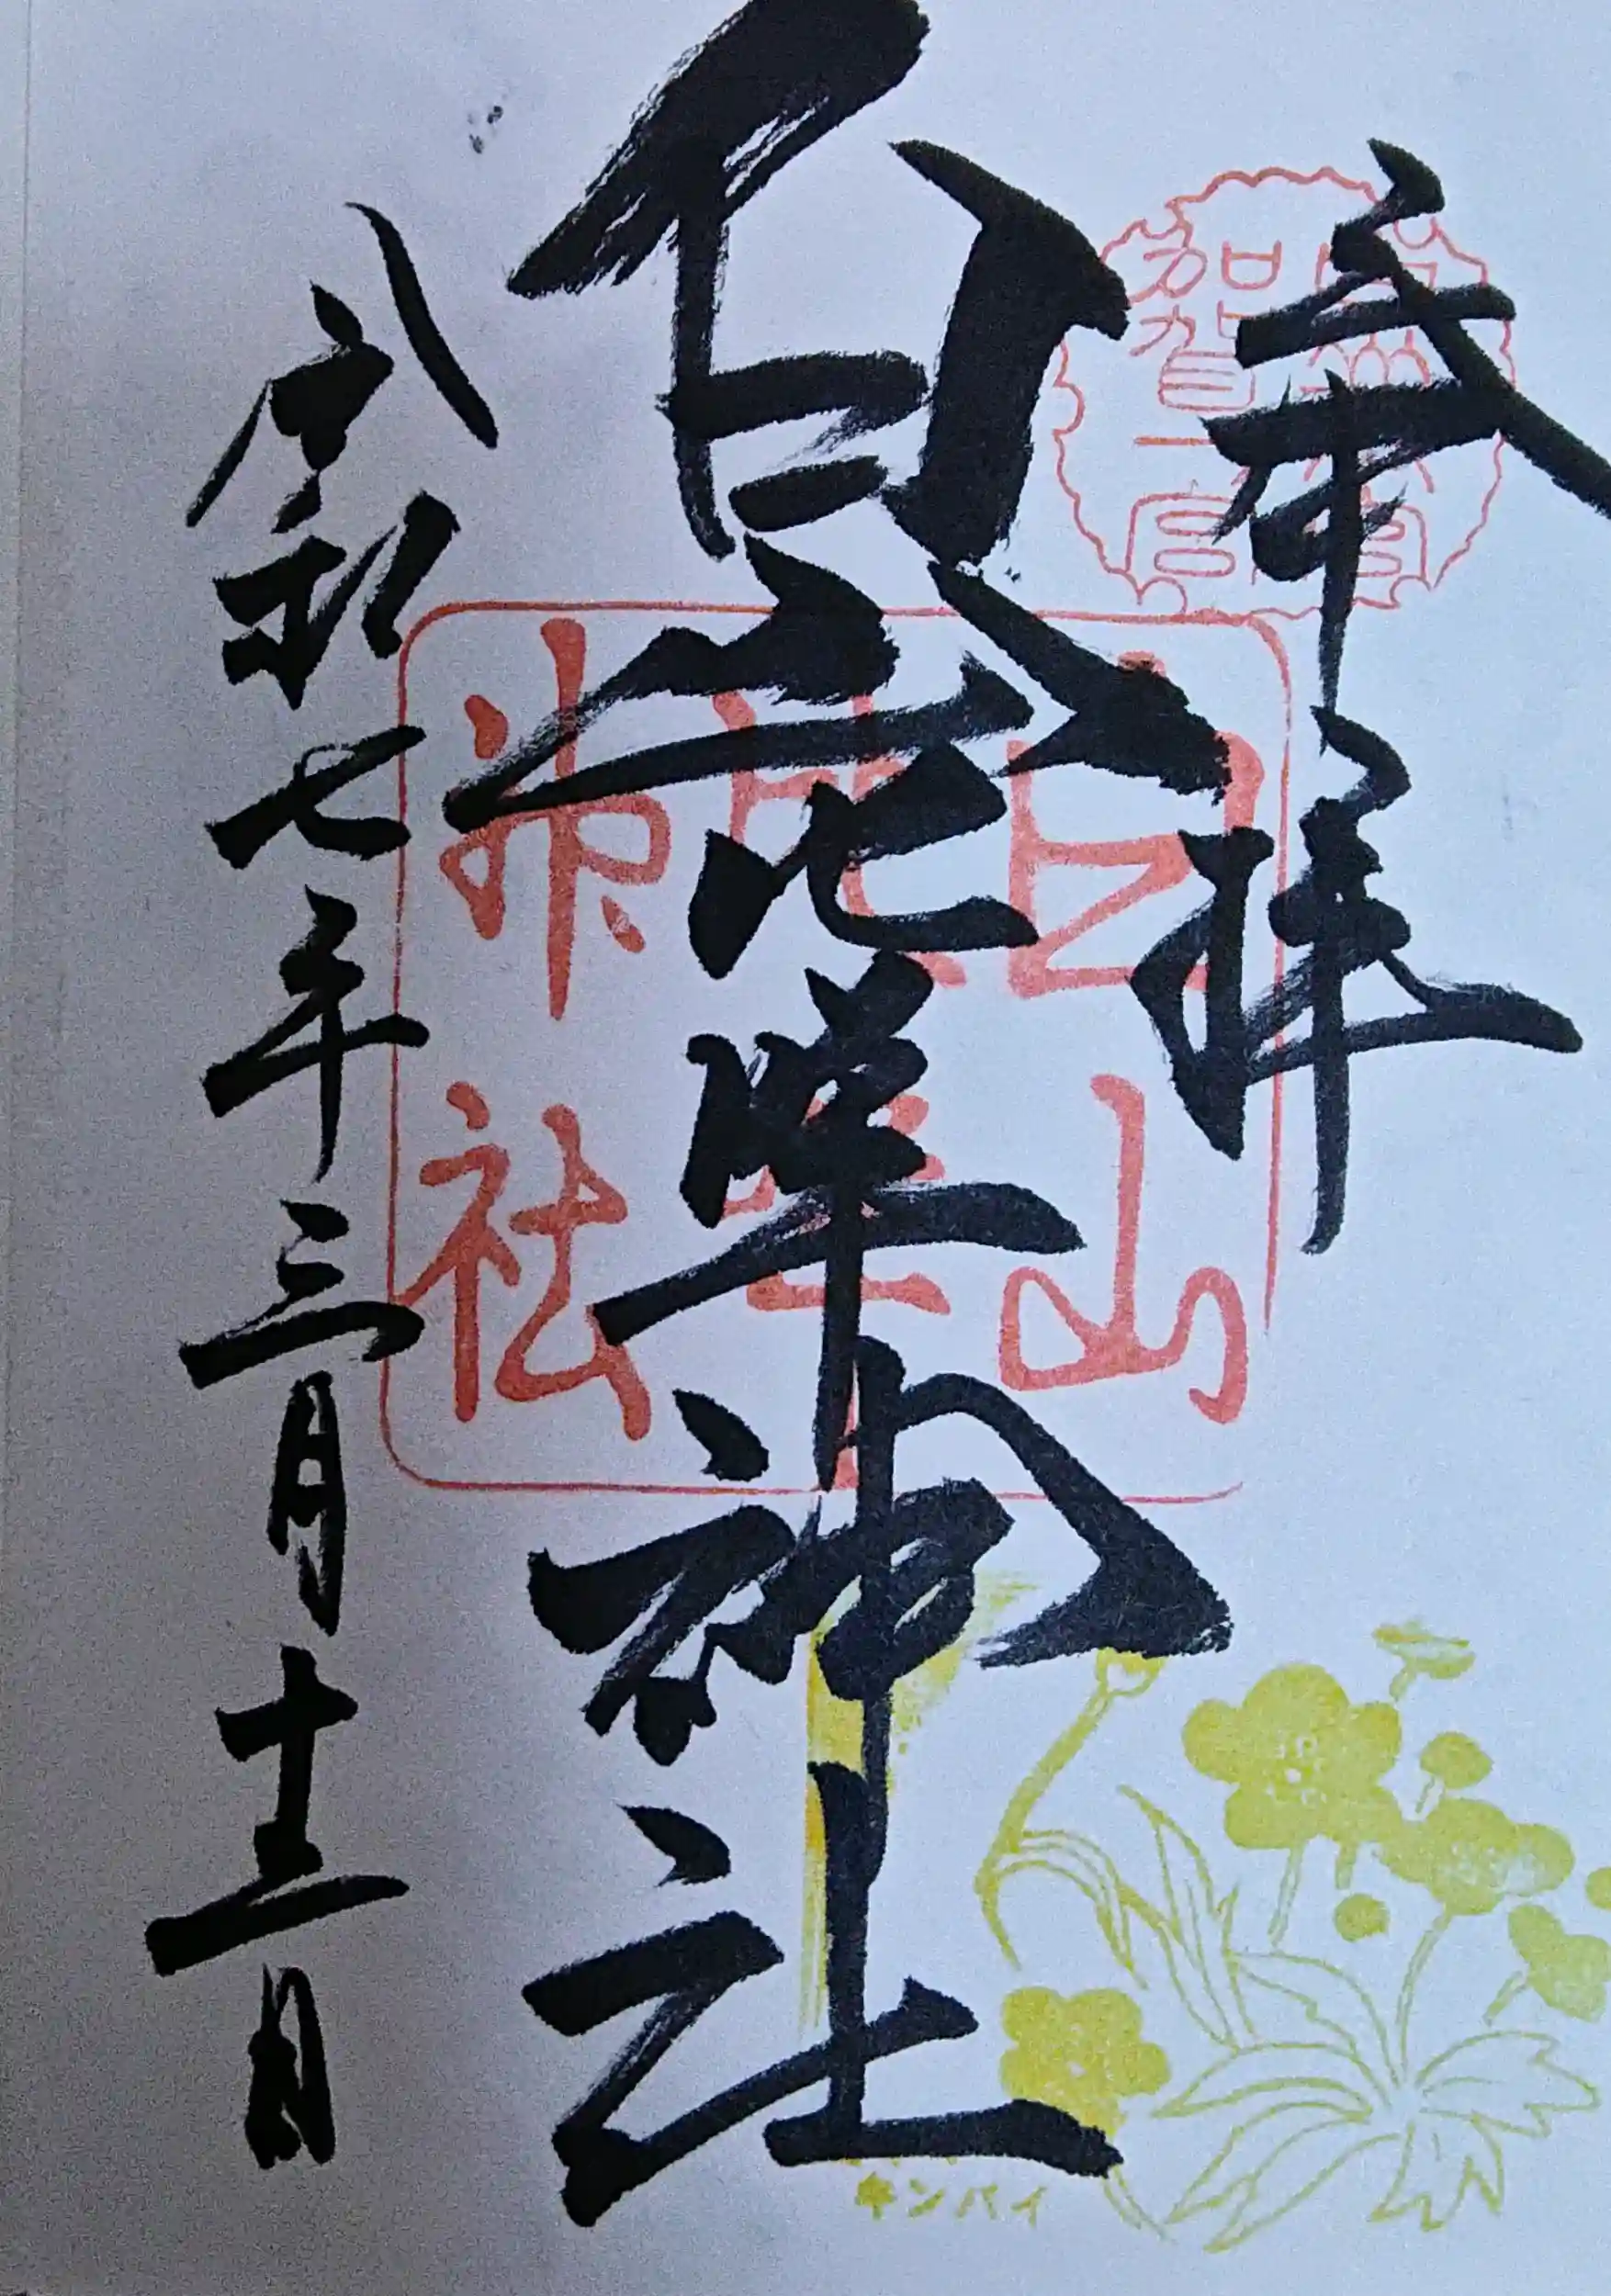 奉拝
白山比咩神社
令和七年三月十三日
白山
比咩
神社
賀一宮
キンバイ